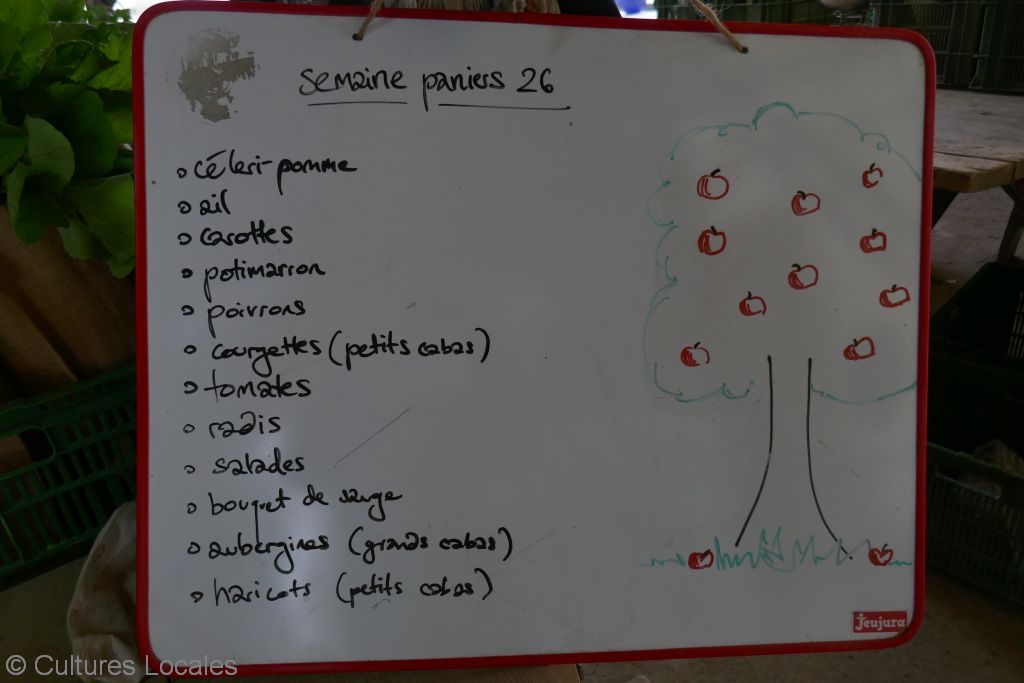 semaine paniers 26
céleri-pomme
ail
carottes
potimarron
poivrons
courgettes (petits cabas)
tomates
radis
salades
bouquet de sauge
aubergines (grands cabas)
haricots (petits cabas)
jeujura
© Cultures Locales